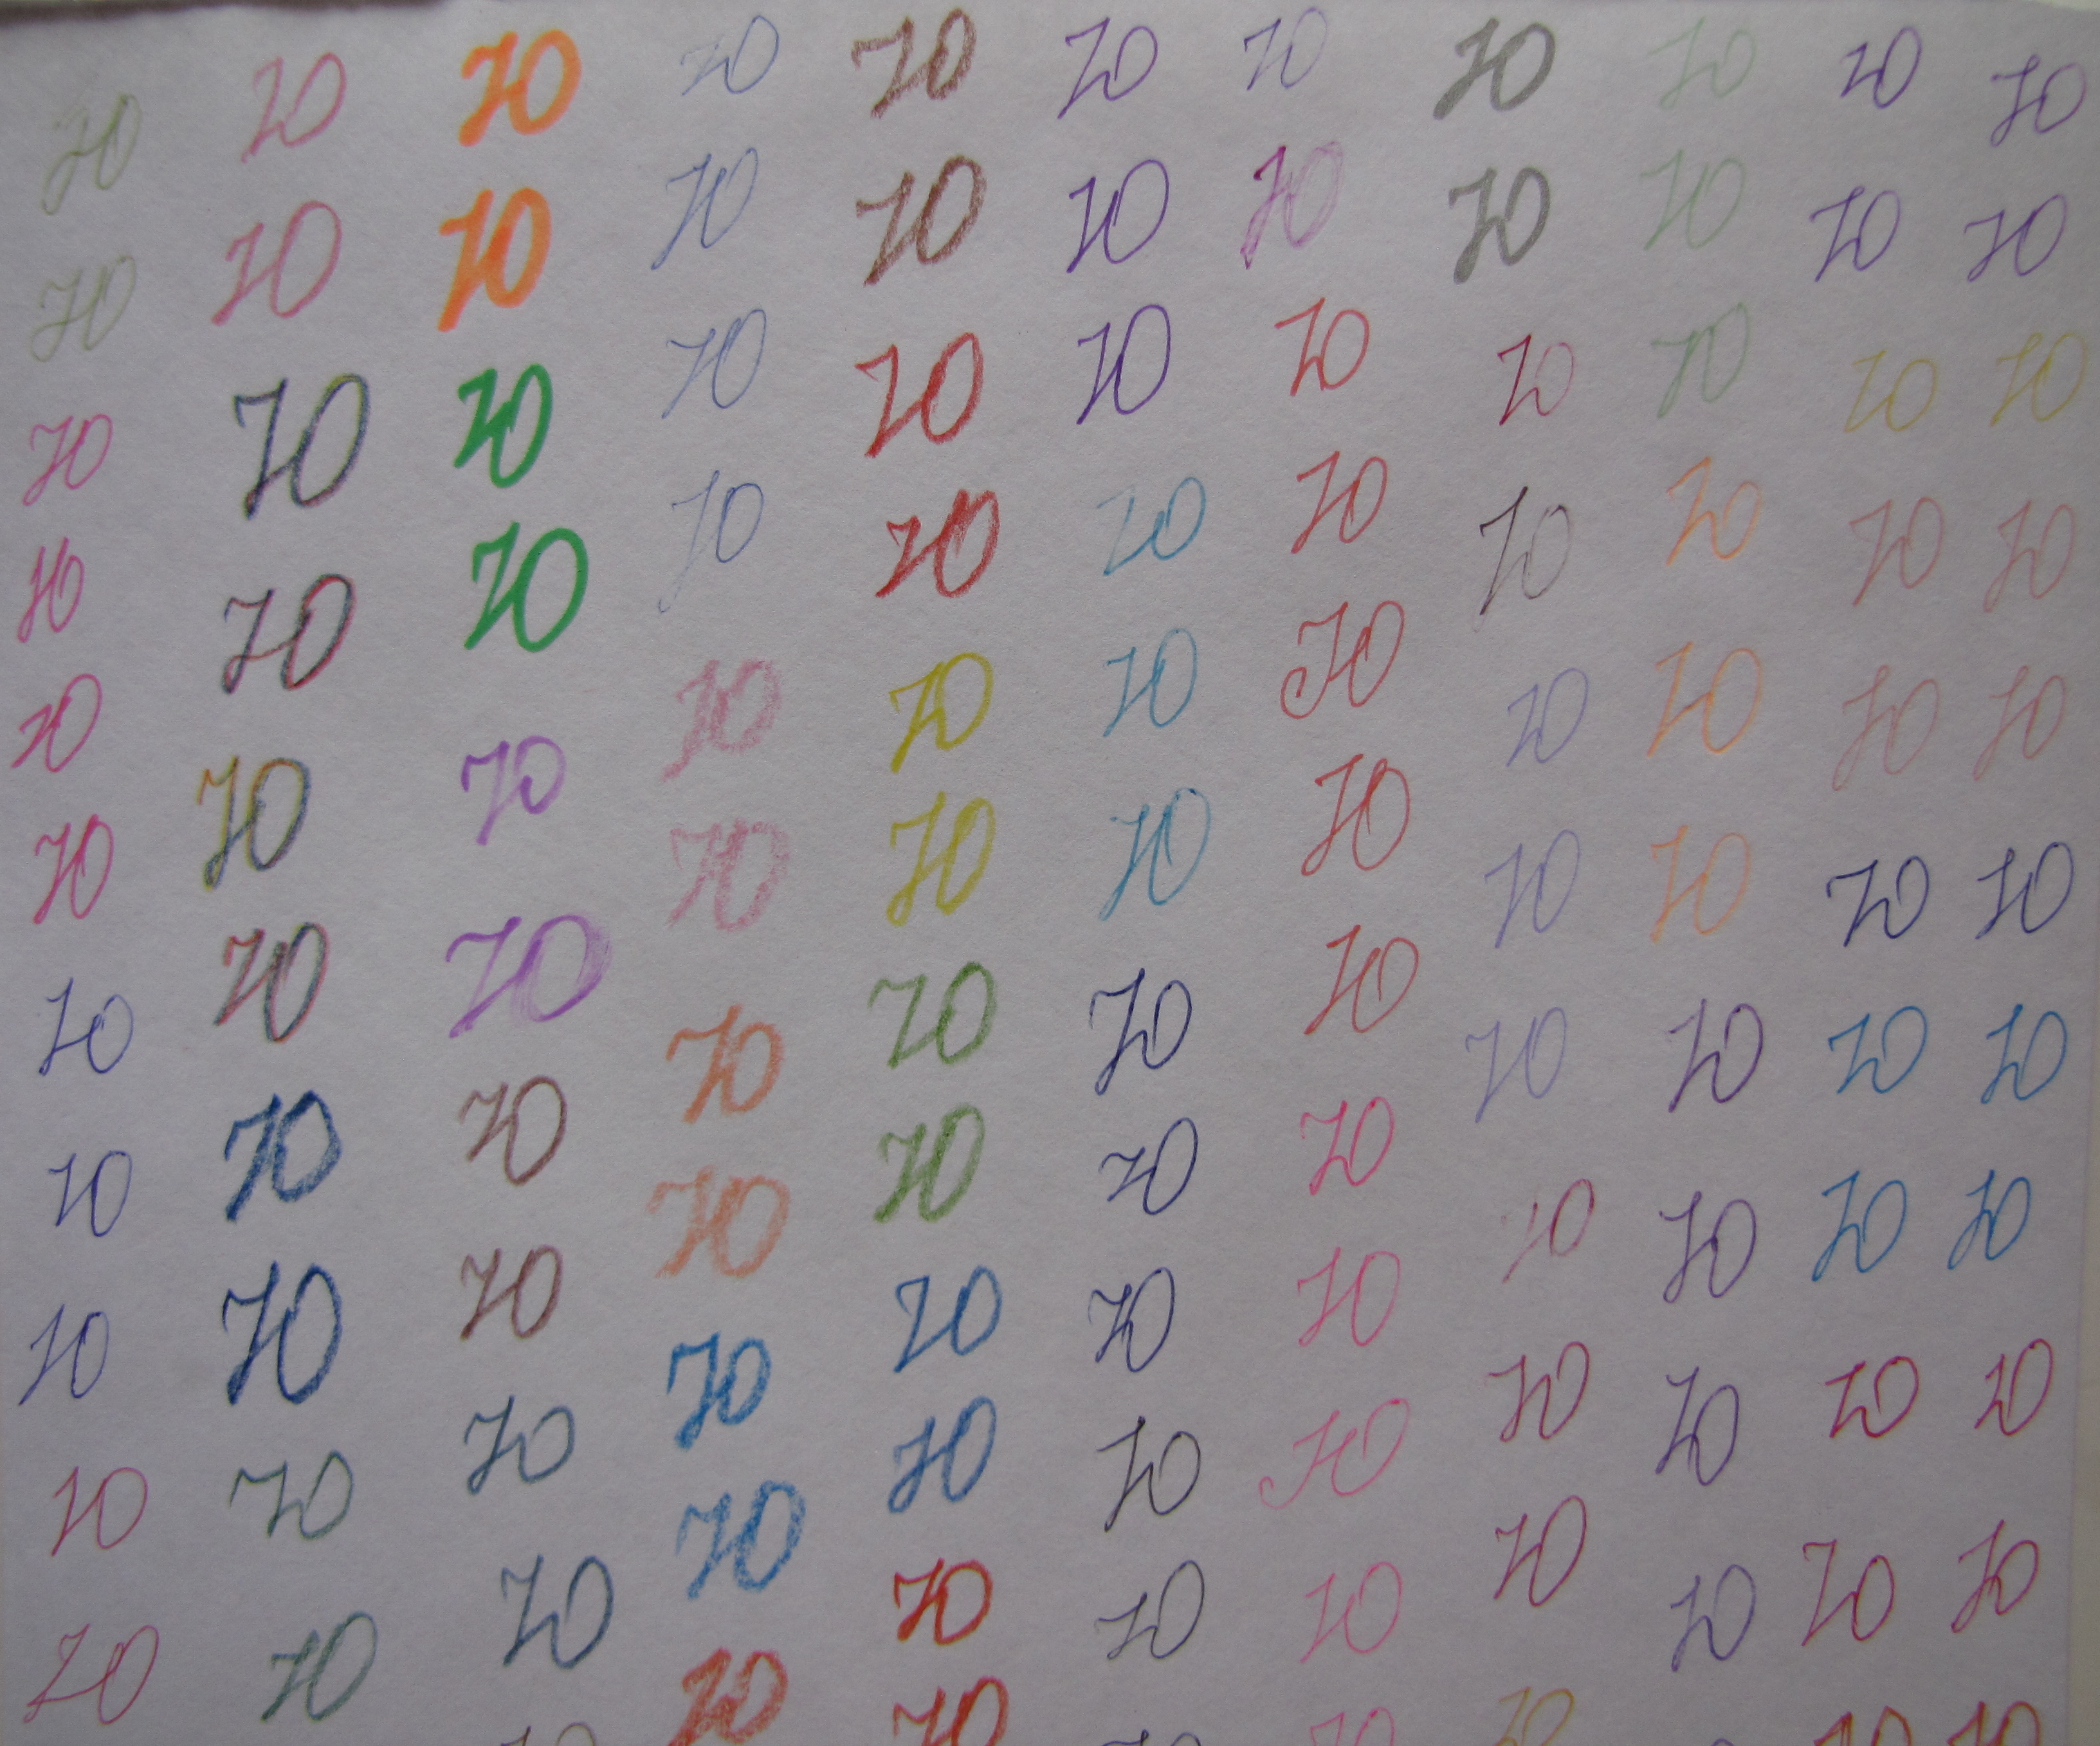 70 70 70 70 70 70 70 70 70 70 70
70 70 70 70 70 70 70 70 70 70 70
70 70 70 70 70 70 70 70 70 70 70
70 70 70 70 70 70 70 70 70 70 70
70 70 70 70 70 70 70 70 70 70 70
70 70 70 70 70 70 70 70 70 70 70
70 70 70 70 70 70 70 70 70 70 70
70 70 70 70 70 70 70 70 70 70 70
70 70 70 70 70 70 70 70 70 70 70
70 70 70 70 70 70 70 70 70 70 70
70 70 70 70 70 70 70 70
70 70